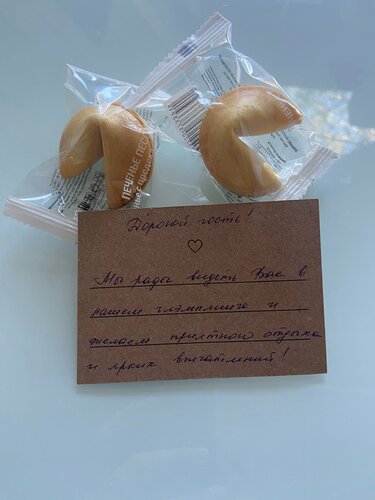 ПЕЧЕНЬЕ ПЕР
Дорогой гость!
Мы рады видеть Вас в
нашем глэмпинге и
желаем приятного отдыха
и ярких впечатлений!